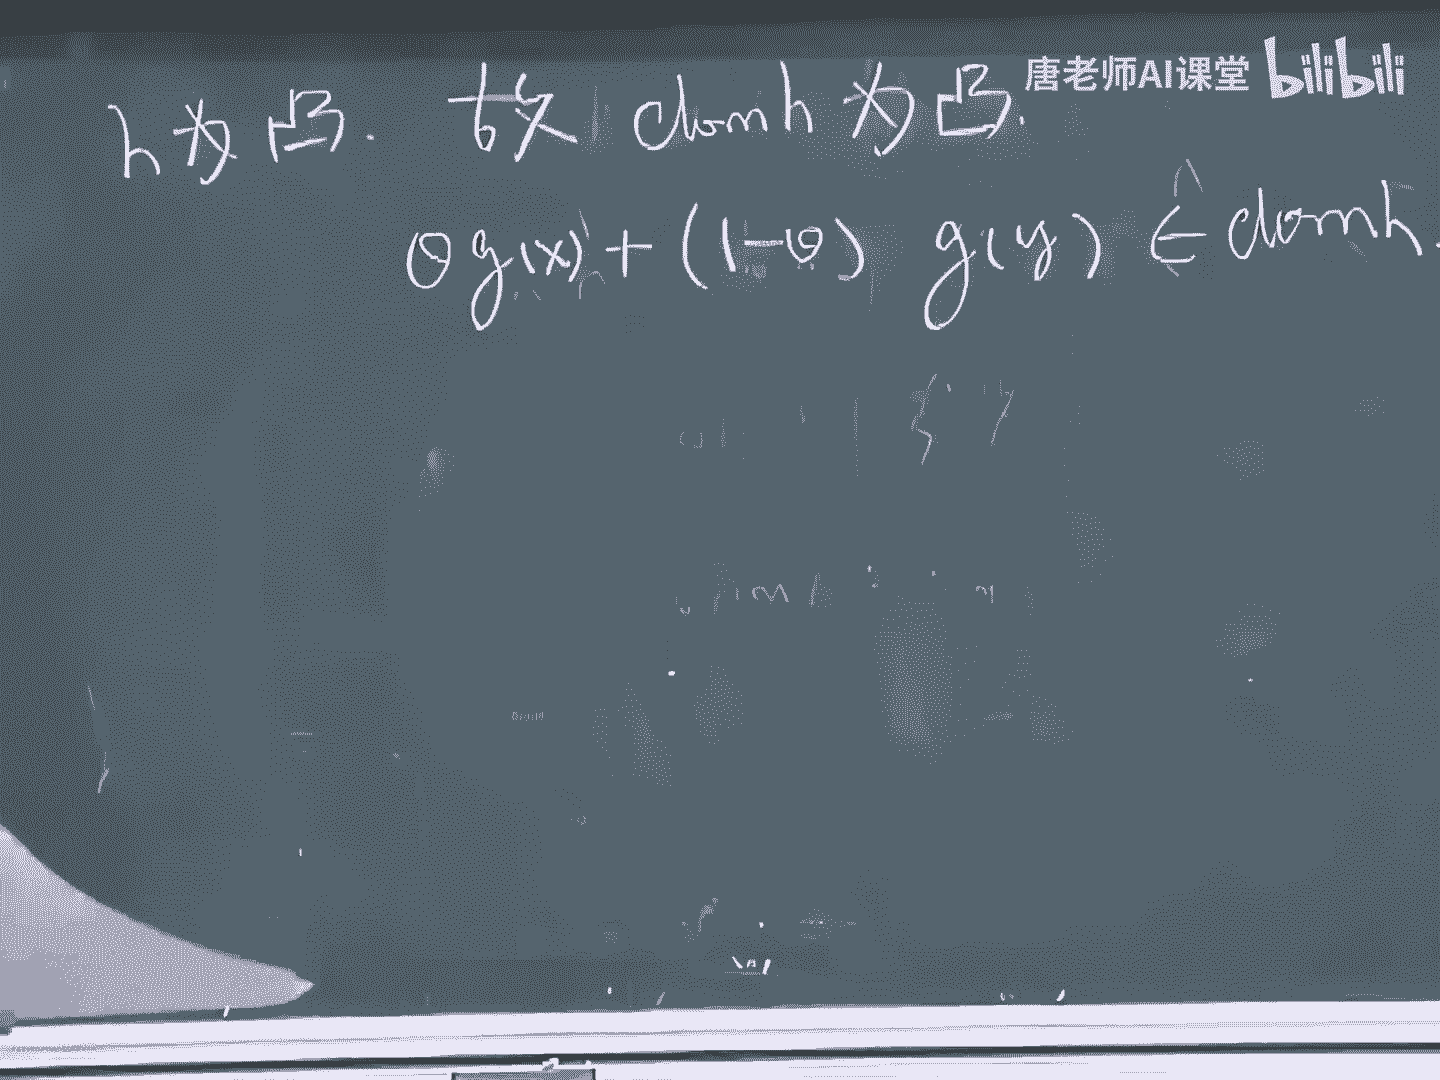 唐老师AI课堂 bilibili
h为凸. 故 dom h 为凸.
θg(x)+(1-θ) g(y) ∈ dom h.